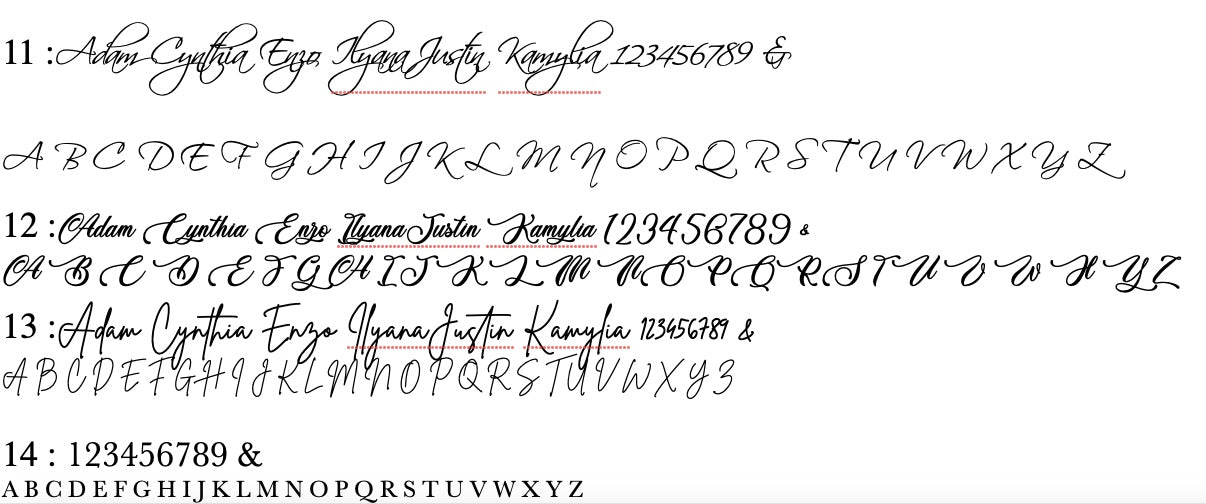 11 : Adam Cynthia Enzo Ilyana Justin Kamylia 123456789 &
A B C D E F G H I J K L M N O P Q R S T U V W X Y Z
12 : Adam Cynthia Enzo Ilyana Justin Kamylia 123456789 &
A B C D E F G H I J K L M N O P Q R S T U V W X Y Z
13 : Adam Cynthia Enzo Ilyana Justin Kamylia 123456789 &
A B C D E F G H I J K L M N O P Q R S T U V W X Y Z
14 : 123456789 &
A B C D E F G H I J K L M N O P Q R S T U V W X Y Z